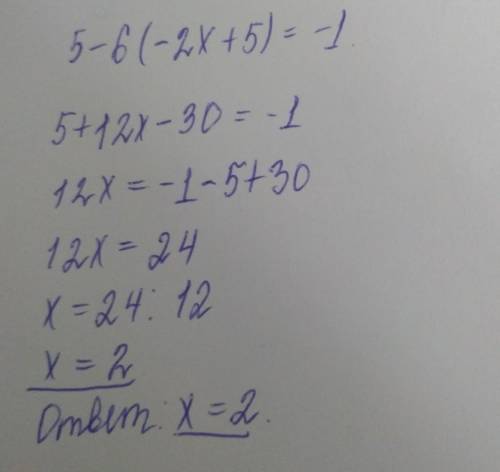 5-6(-2x+5)=-1.
5+12x-30=-1
12x=-1-5+30
12x=24
x=24:12
x=2
Ответ: x=2.